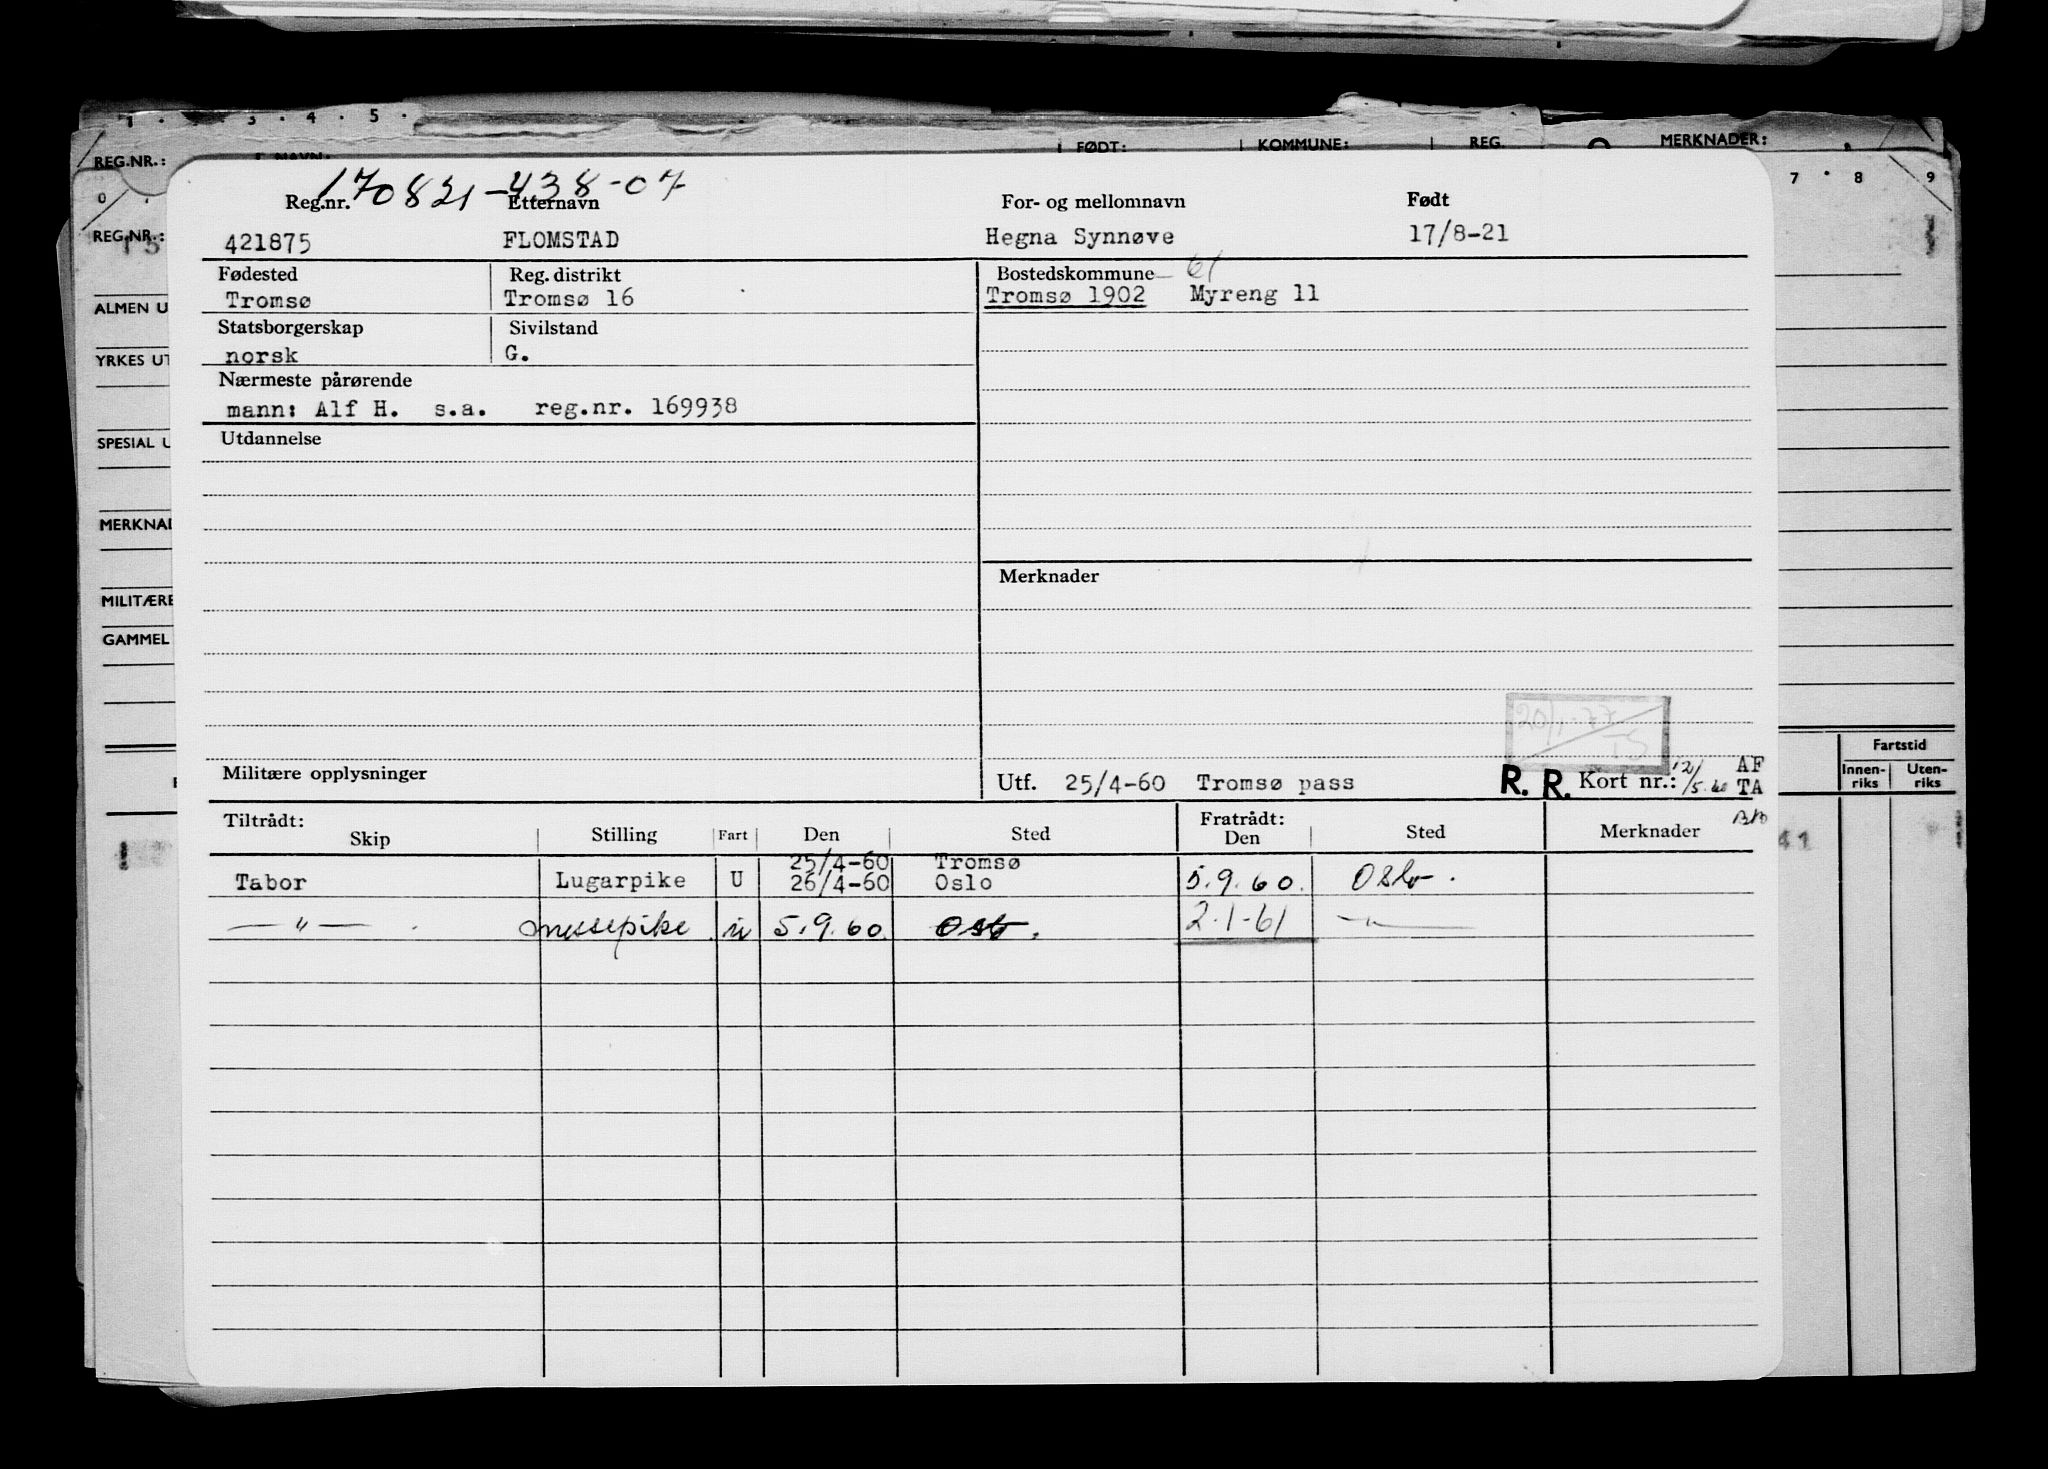 1 . 3 . 4 . 5 .
REG.NR.: FØDT: KOMMUNE: REG. MERKNADER:
0 7 . 8 9
REG.NR.:
ALMEN U
YRKES UT
SPESIAL U
MERKNAD
MILITÆRE
GAMMEL
Fartstid
Innen- riks Uten- riks
41
170821-438-07
Reg.nr. Etternavn For- og mellomnavn Født
421875 FLOMSTAD Hegna Synnøve 17/8-21
Fødested Reg. distrikt Bostedskommune 61
Tromsø Tromsø 16 Tromsø 1902 Myreng 11
Statsborgerskap Sivilstand
norsk G.
Nærmeste pårørende
mann: Alf H. s.a. reg.nr. 169938
Utdannelse
Merknader
20/1-77
TS
Militære opplysninger Utf. 25/4-60 Tromsø pass R. R. Kort nr.: 12/5.60 AF
TA
Tiltrådt: Fratrådt:
Skip Stilling Fart Den Sted Den Sted Merknader
25/4-60 Tromsø
Tabor Lugarpike U 26/4-60 Oslo 5.9.60. Oslo.
—"— messepike u 5.9.60 Oslo. 2.1-61 —"—